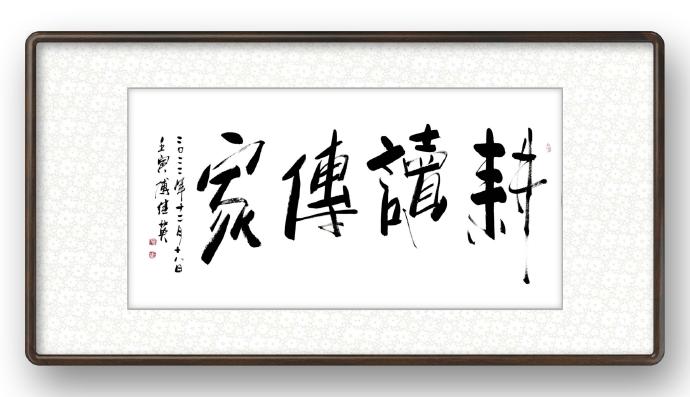 耕讀傳家
二〇二二年十二月十八日
壬寅 傅佳英